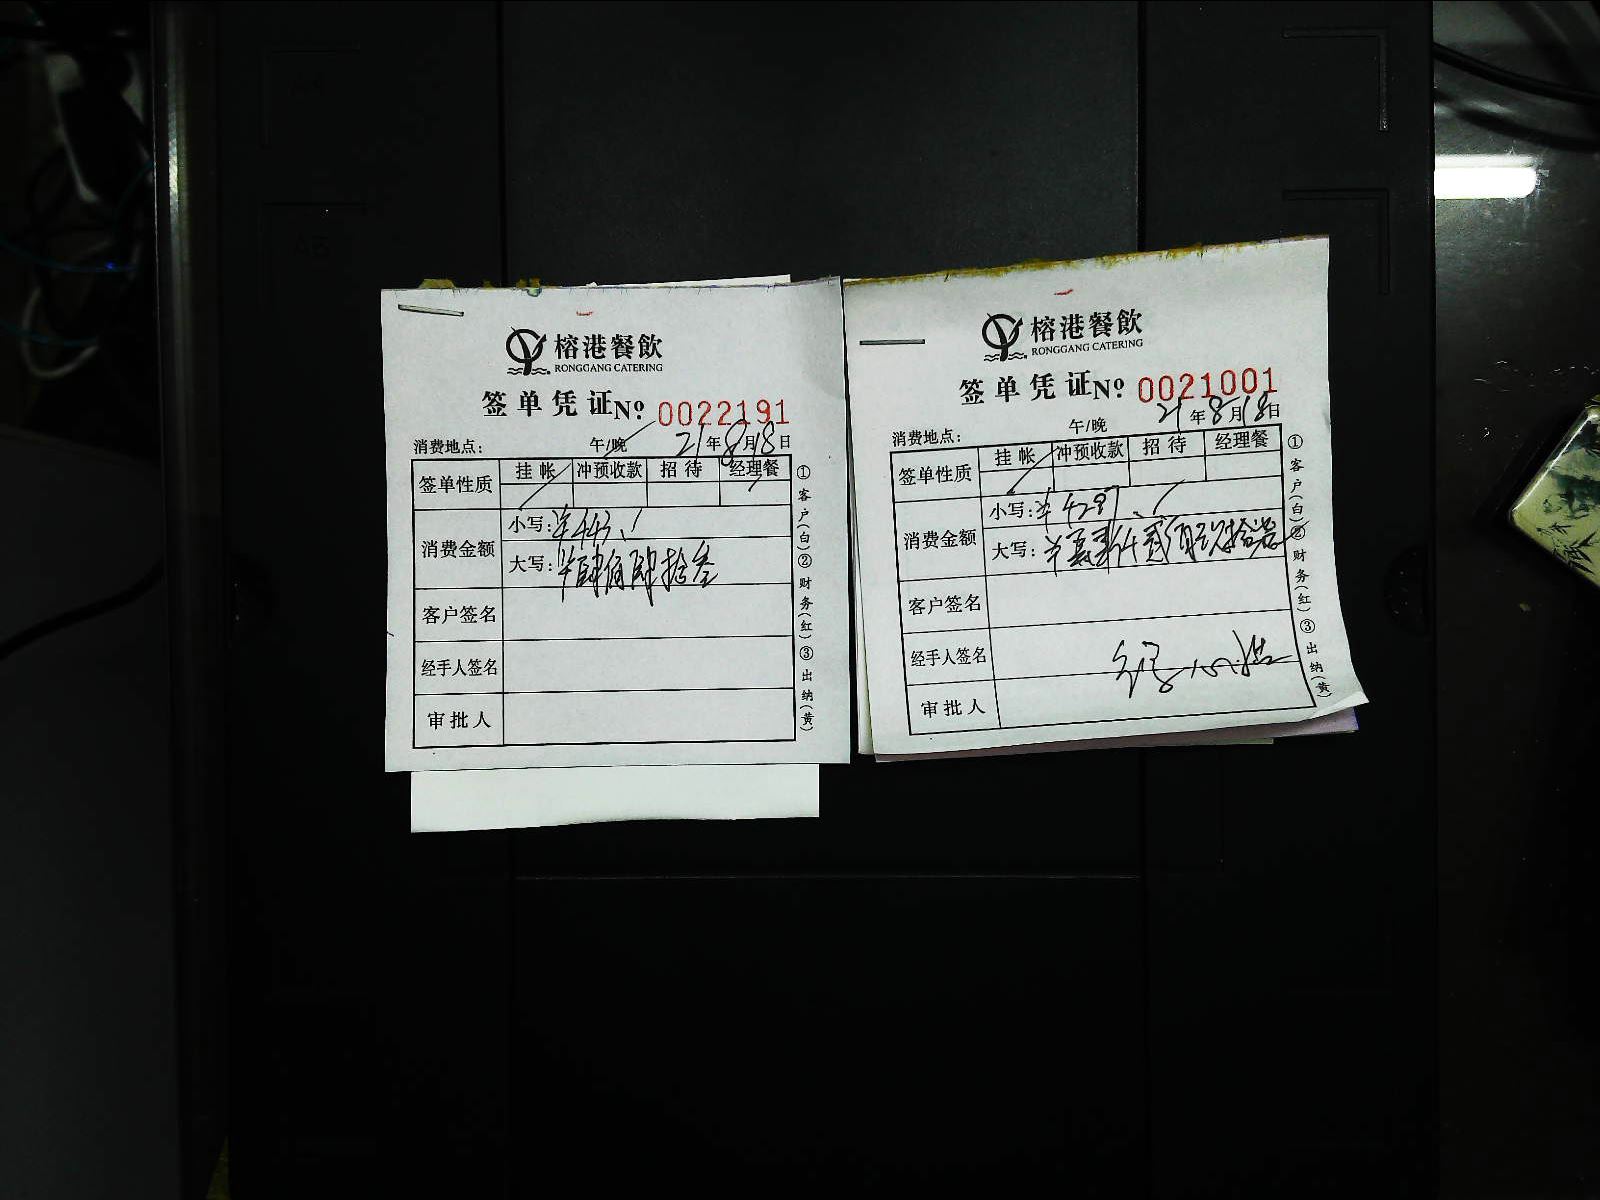 榕港餐飲
RONGGANG CATERING
签单凭证 № 0022191
消费地点: 午/晚 21年8月18日
签单性质 挂帐 冲预收款 招待 经理餐
消费金额
小写: ¥443
大写: ¥肆佰肆拾叁
客户签名
经手人签名
审批人
①客户(白)②财务(红)③出纳(黄)
榕港餐飲
RONGGANG CATERING
签单凭证 № 0021001
消费地点: 午/晚 21年8月18日
签单性质 挂帐 冲预收款 招待 经理餐
消费金额
小写:
大写:
客户签名
经手人签名
审批人
①客户(白)②财务(红)③出纳(黄)